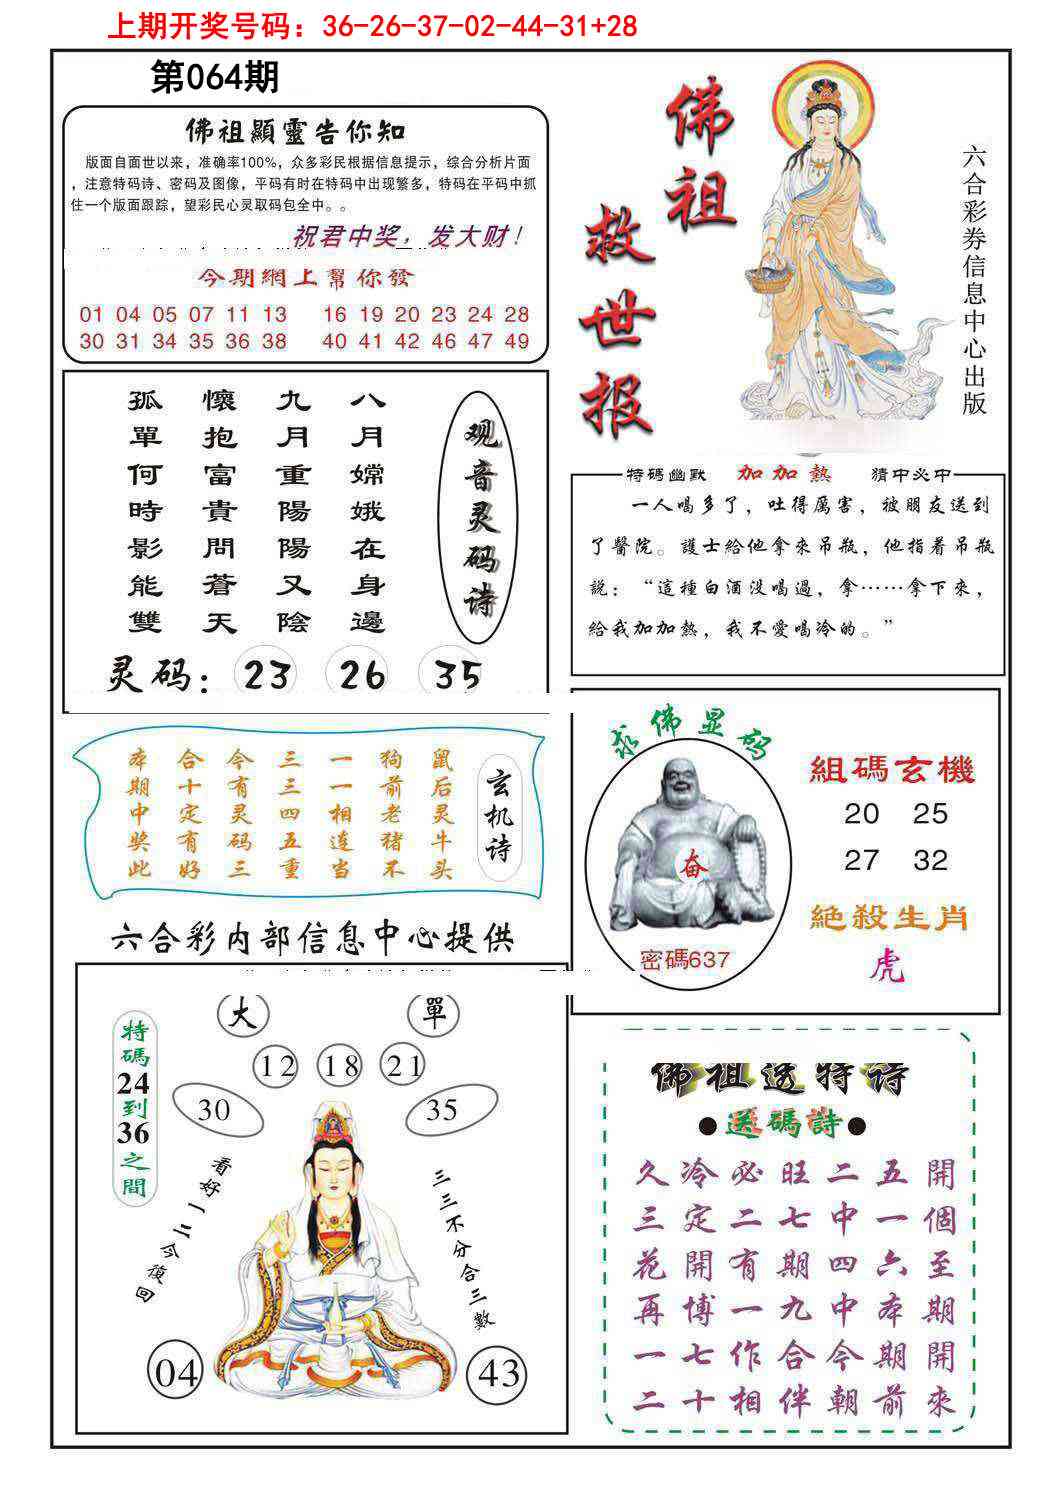 上期开奖号码：36-26-37-02-44-31+28
第064期
佛祖顯靈告你知
版面自面世以来，准确率100%，众多彩民根据信息提示，综合分析片面
，注意特码诗、密码及图像，平码有时在特码中出现繁多，特码在平码中抓
住一个版面跟踪，望彩民心灵取码包全中。。
祝君中奖，发大财！
今期網上幫你發
01 04 05 07 11 13 16 19 20 23 24 28
30 31 34 35 36 38 40 41 42 46 47 49
佛祖
救世报
六合彩券信息中心出版
观音灵码诗
八月嫦娥在身邊
九月重陽陽又陰
懷抱富貴問蒼天
孤單何時影能雙
灵码：23 26 35
特碼幽默 加加熱 猜中必中
一人喝多了，吐得厲害，被朋友送到
了醫院。護士給他拿來吊瓶，他指着吊瓶
説：“這種白酒没喝過，拿……拿下來，
給我加加熱，我不愛喝冷的。”
玄机诗
鼠后灵牛头
狗前老猪不
一一相连当
三三四五重
今有灵码三
合十定有好
本期中奖此
求佛显码
奋
密碼637
組碼玄機
20 25
27 32
絶殺生肖
虎
六合彩内部信息中心提供
大 單
12 18 21
30 35
特碼24到36之間
看好一二今復回
三三不分合三數
04 43
佛祖透特诗
●送碼詩●
久冷必旺二五開
三定二七中一個
花開有期四六至
再博一九中本期
一七作合今期開
二十相伴朝前來